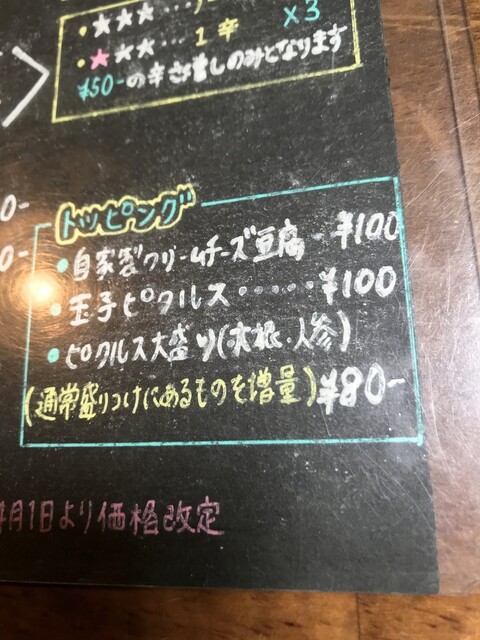 ・★★★…
・★★★… 1辛 ×3
¥50-の辛さ増しのみとなります
0-
0-
トッピング
・自家製クリームチーズ豆腐-¥100
・玉子ピクルス・・・・・¥100
・ピクルス大盛り(大根・人参)
(通常盛りつけにあるものを増量)¥80-
月1日より価格改定